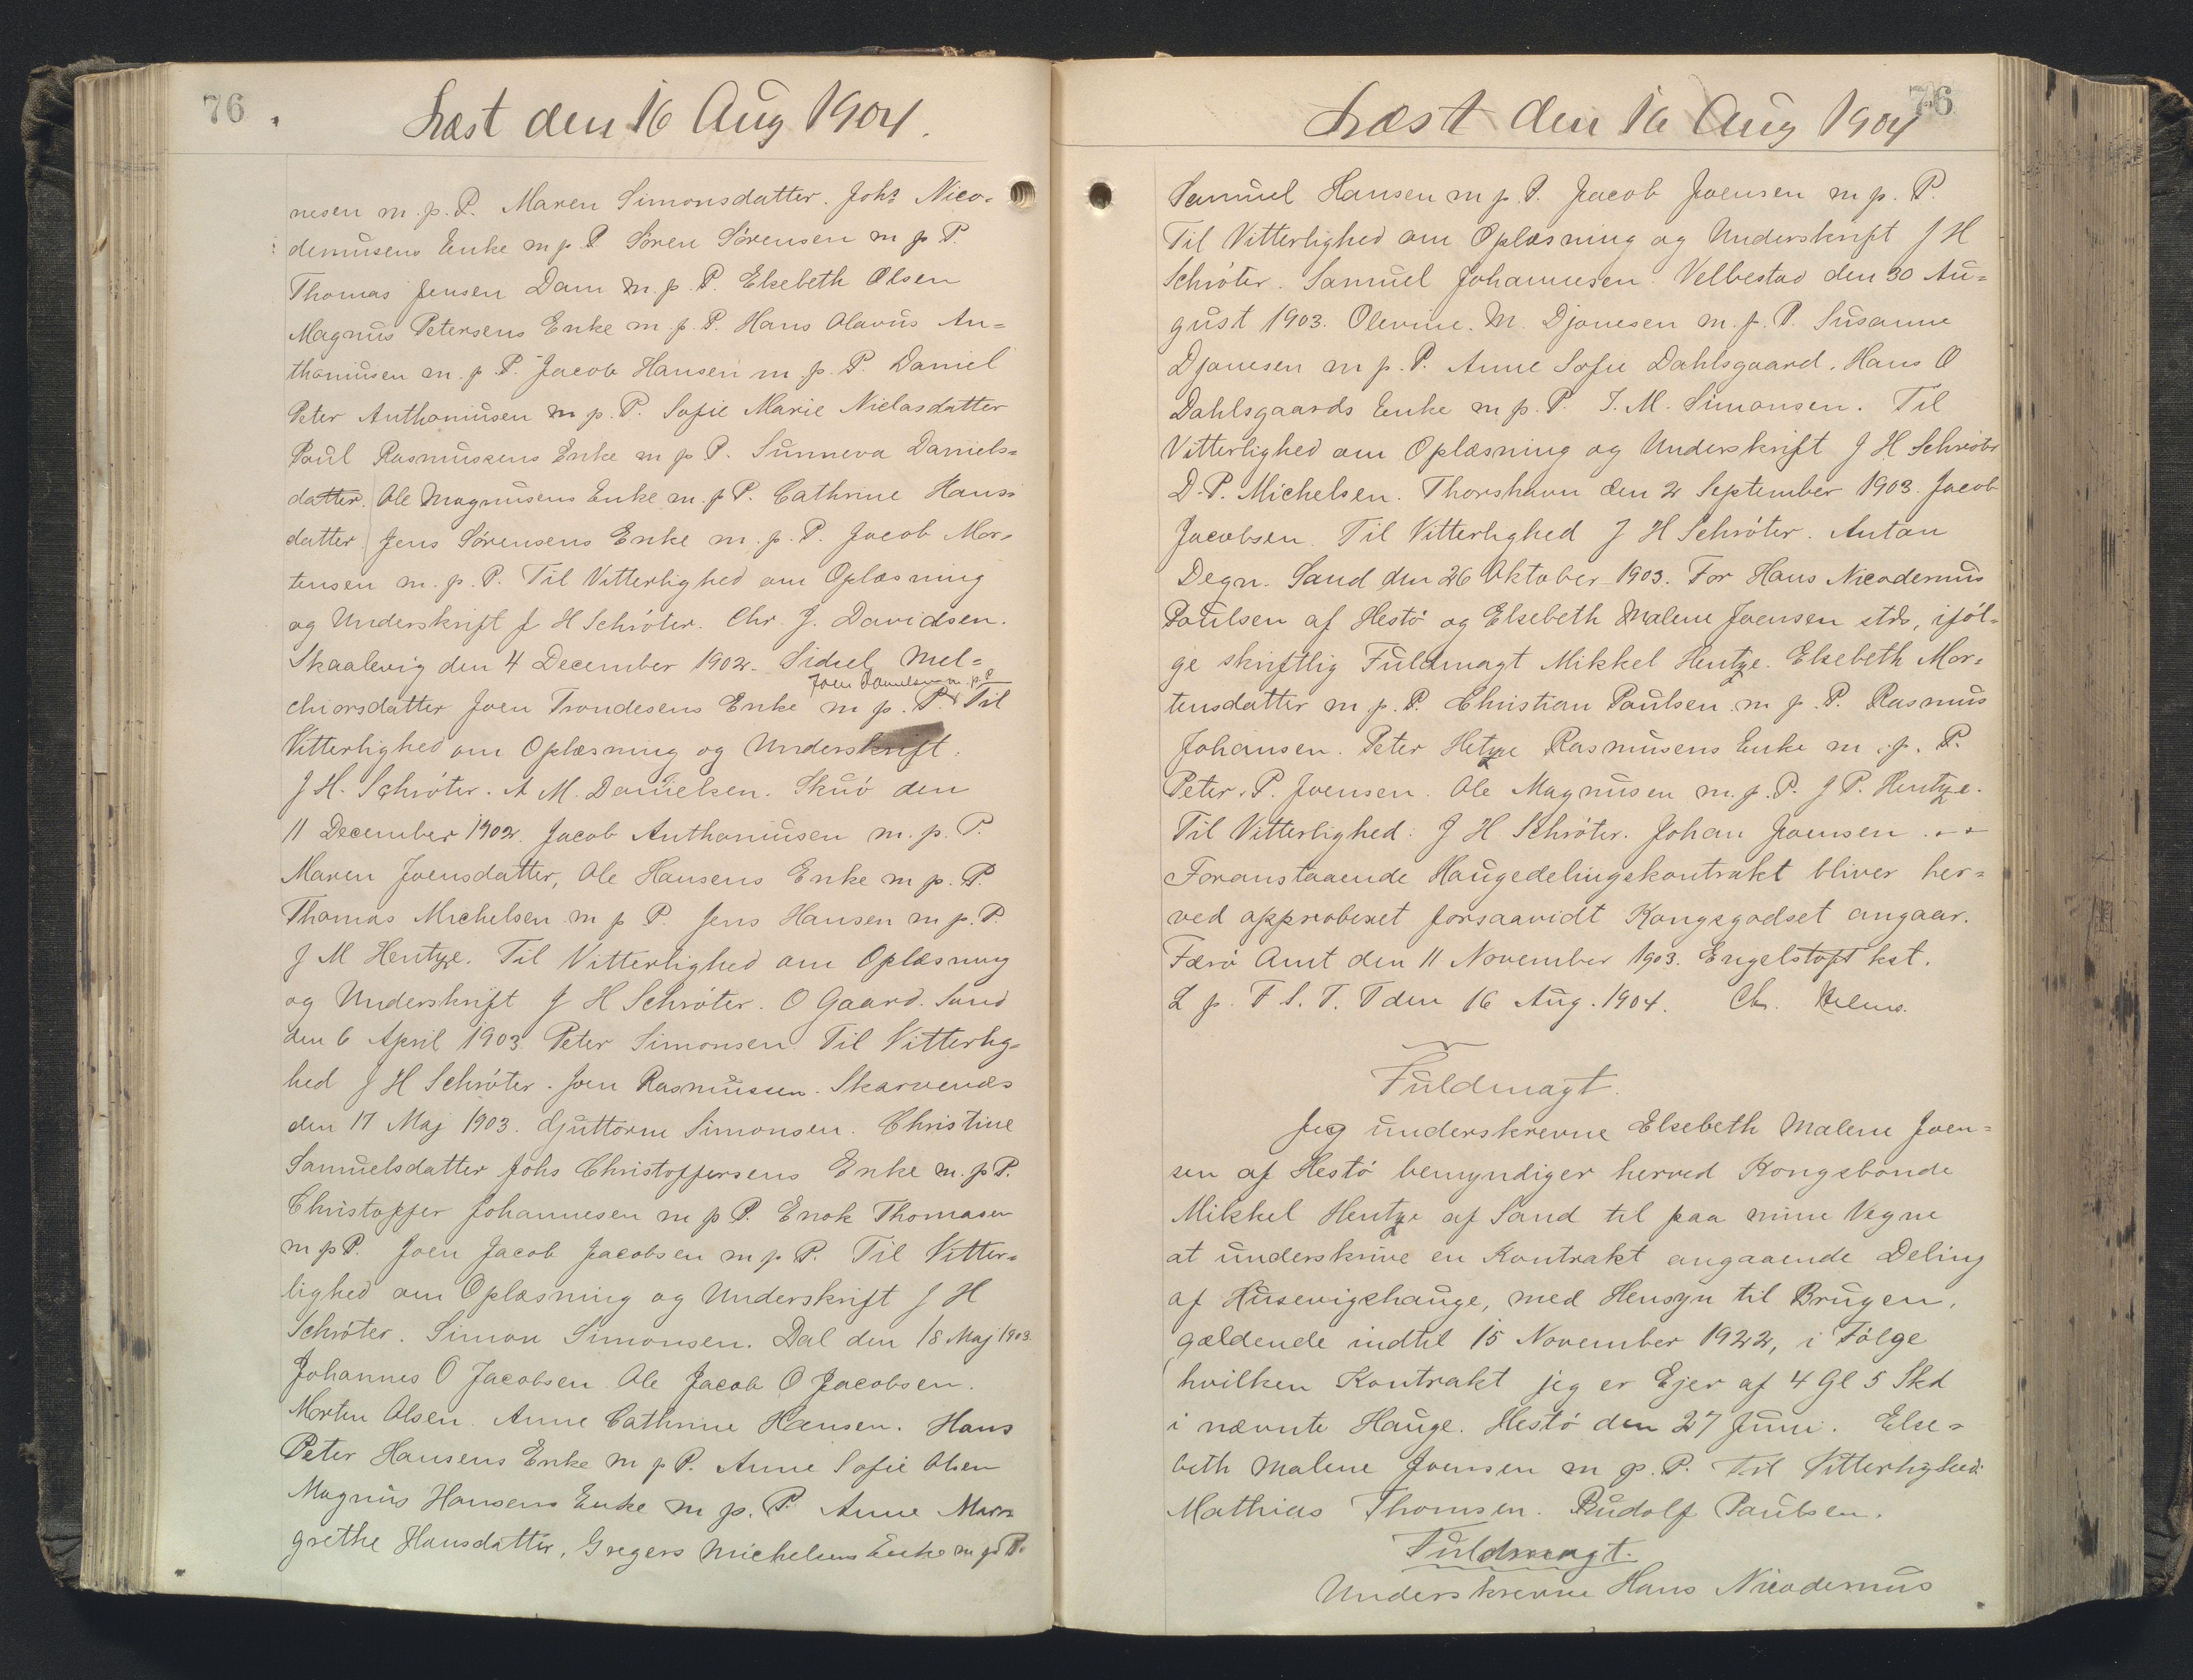 76
Læst den 16 Aug 1904.
nesen m. p. P. Maren Simonsdatter. Johs Nico-
demusens Enke m p P Sören Sörensen m p P.
Thomas Jensen Dam m. p. P. Elsebeth Olsen
Magnus Petersens Enke m. p. P. Hans Olavus An-
thoniusen m. p. P. Jacob Hansen m. p. P. Daniel
Peter Anthoniusen m p. P. Sofie Marie Niclasdatter
Poul Rasmussens Enke m p P. Sunneva Daniels-
datter. Ole Magnusens Enke m. p P. Cathrine Hans-
datter. Jens Sörensens Enke m. p. P. Jacob Mor-
tensen m. p. P. Til Vitterlighed om Oplæsning
og Underskrift J H Schröter. Chr. J. Davidsen.
Skaalevig den 4 December 1902. Sidsel Mel-
Joen Danielsen m. p. P
chiorsdatter Joen Trondesens Enke m p. P. Til
Vitterlighed om Oplæsning og Underskrift.
J H. Schröter. A M. Danielsen. Skuö den
11 December 1902. Jacob Anthoniusen m. p. P.
Maren Joensdatter, Ole Hansens Enke m p. P.
Thomas Michelsen m p P. Jens Hansen m p. P.
J M Hentze. Til Vitterlighed om Oplæsning
og Underskrift J H Schröter. O Gaard. Sand
den 6 April 1903. Peter Simonsen. Til Vitterlig-
hed J H Schröter. Joen Rasmussen. Skarvenæs
den 17 Maj 1903. Guttorm Simonsen. Christine
Samuelsdatter Johs Christoffersens Enke m. p P.
Christoffer Johannesen m p P. Enok Thomasen
m p P. Joen Jacob Jacobsen m p P. Til Vitter-
lighed om Oplæsning og Underskrift J H
Schröter. Simon Simonsen. Dal den 18 Maj 1903.
Johannes O Jacobsen. Ole Jacob O Jacobsen.
Morten Olsen. Anne Cathrine Hansen. Hans
Peter Hansens Enke m p P. Anne Sofie Olsen
Magnus Hansens Enke m p. P. Anne Mar-
grethe Hansdatter, Gregers Michelsens Enke m p P.
76
Læst den 16 Aug 1904
Samuel Hansen m p. P. Jacob Joensen m p. P.
Til Vitterlighed om Oplæsning og Underskrift J H
Schröter. Samuel Johannesen. Velbestad den 30 Au-
gust 1903. Olevine. M. Djonesen m. p. P. Susanne
Djonesen m p. P. Anne Sofie Dahlsgaard. Hans O
Dahlsgaards Enke m p. P. J. M. Simonsen. Til
Vitterlighed om Oplæsning og Underskrift J H Schröter
D. P. Michelsen. Thorshavn den 2 September 1903. Jacob
Jacobsen. Til Vitterlighed J H Schröter. Anton
Degn. Sand den 26 Oktober 1903. For Hans Nicodemus
Poulsen af Hestö og Elsebeth Malene Joensen stds, iföl-
ge skriftlig Fuldmagt Mikkel Hentze. Elsebeth Mor-
tensdatter m. p. P. Christian Poulsen m p. P. Rasmus
Johansen. Peter Hetze Rasmusens Enke m. p. P.
Peter. P. Joensen. Ole Magnusen m. p. P. J P. Hentze.
Til Vitterlighed: J H. Schröter. Johan Joensen.
Foranstaaende Haugedelingskontrakt bliver her-
ved approberet forsaavidt Kongsgodset angaar.
Færö Amt den 11 November 1903. Engelstoft kst.
L p. F S. T. T den 16 Aug. 1904. Chr. Helms.
Fuldmagt.
Jeg underskrevne Elsebeth Malene Joen-
sen af Hestö bemyndiger herved Kongsbonde
Mikkel Hentze af Sand til paa mine Vegne
at underskrive en Kontrakt angaaende Deling
af Husevigshauge, med Hensyn til Brugen,
gældende indtil 15 November 1922, i Fölge
hvilken Kontrakt jeg er Ejer af 4 Gl 5 Skd
i nævnte Hauge. Hestö den 27 Juni. Else-
beth Malene Joensen m p. P. Til Vitterlighed:
Mathias Thomsen. Rudolf Poulsen.
Fuldmagt.
Underskrevne Hans Nicodemus